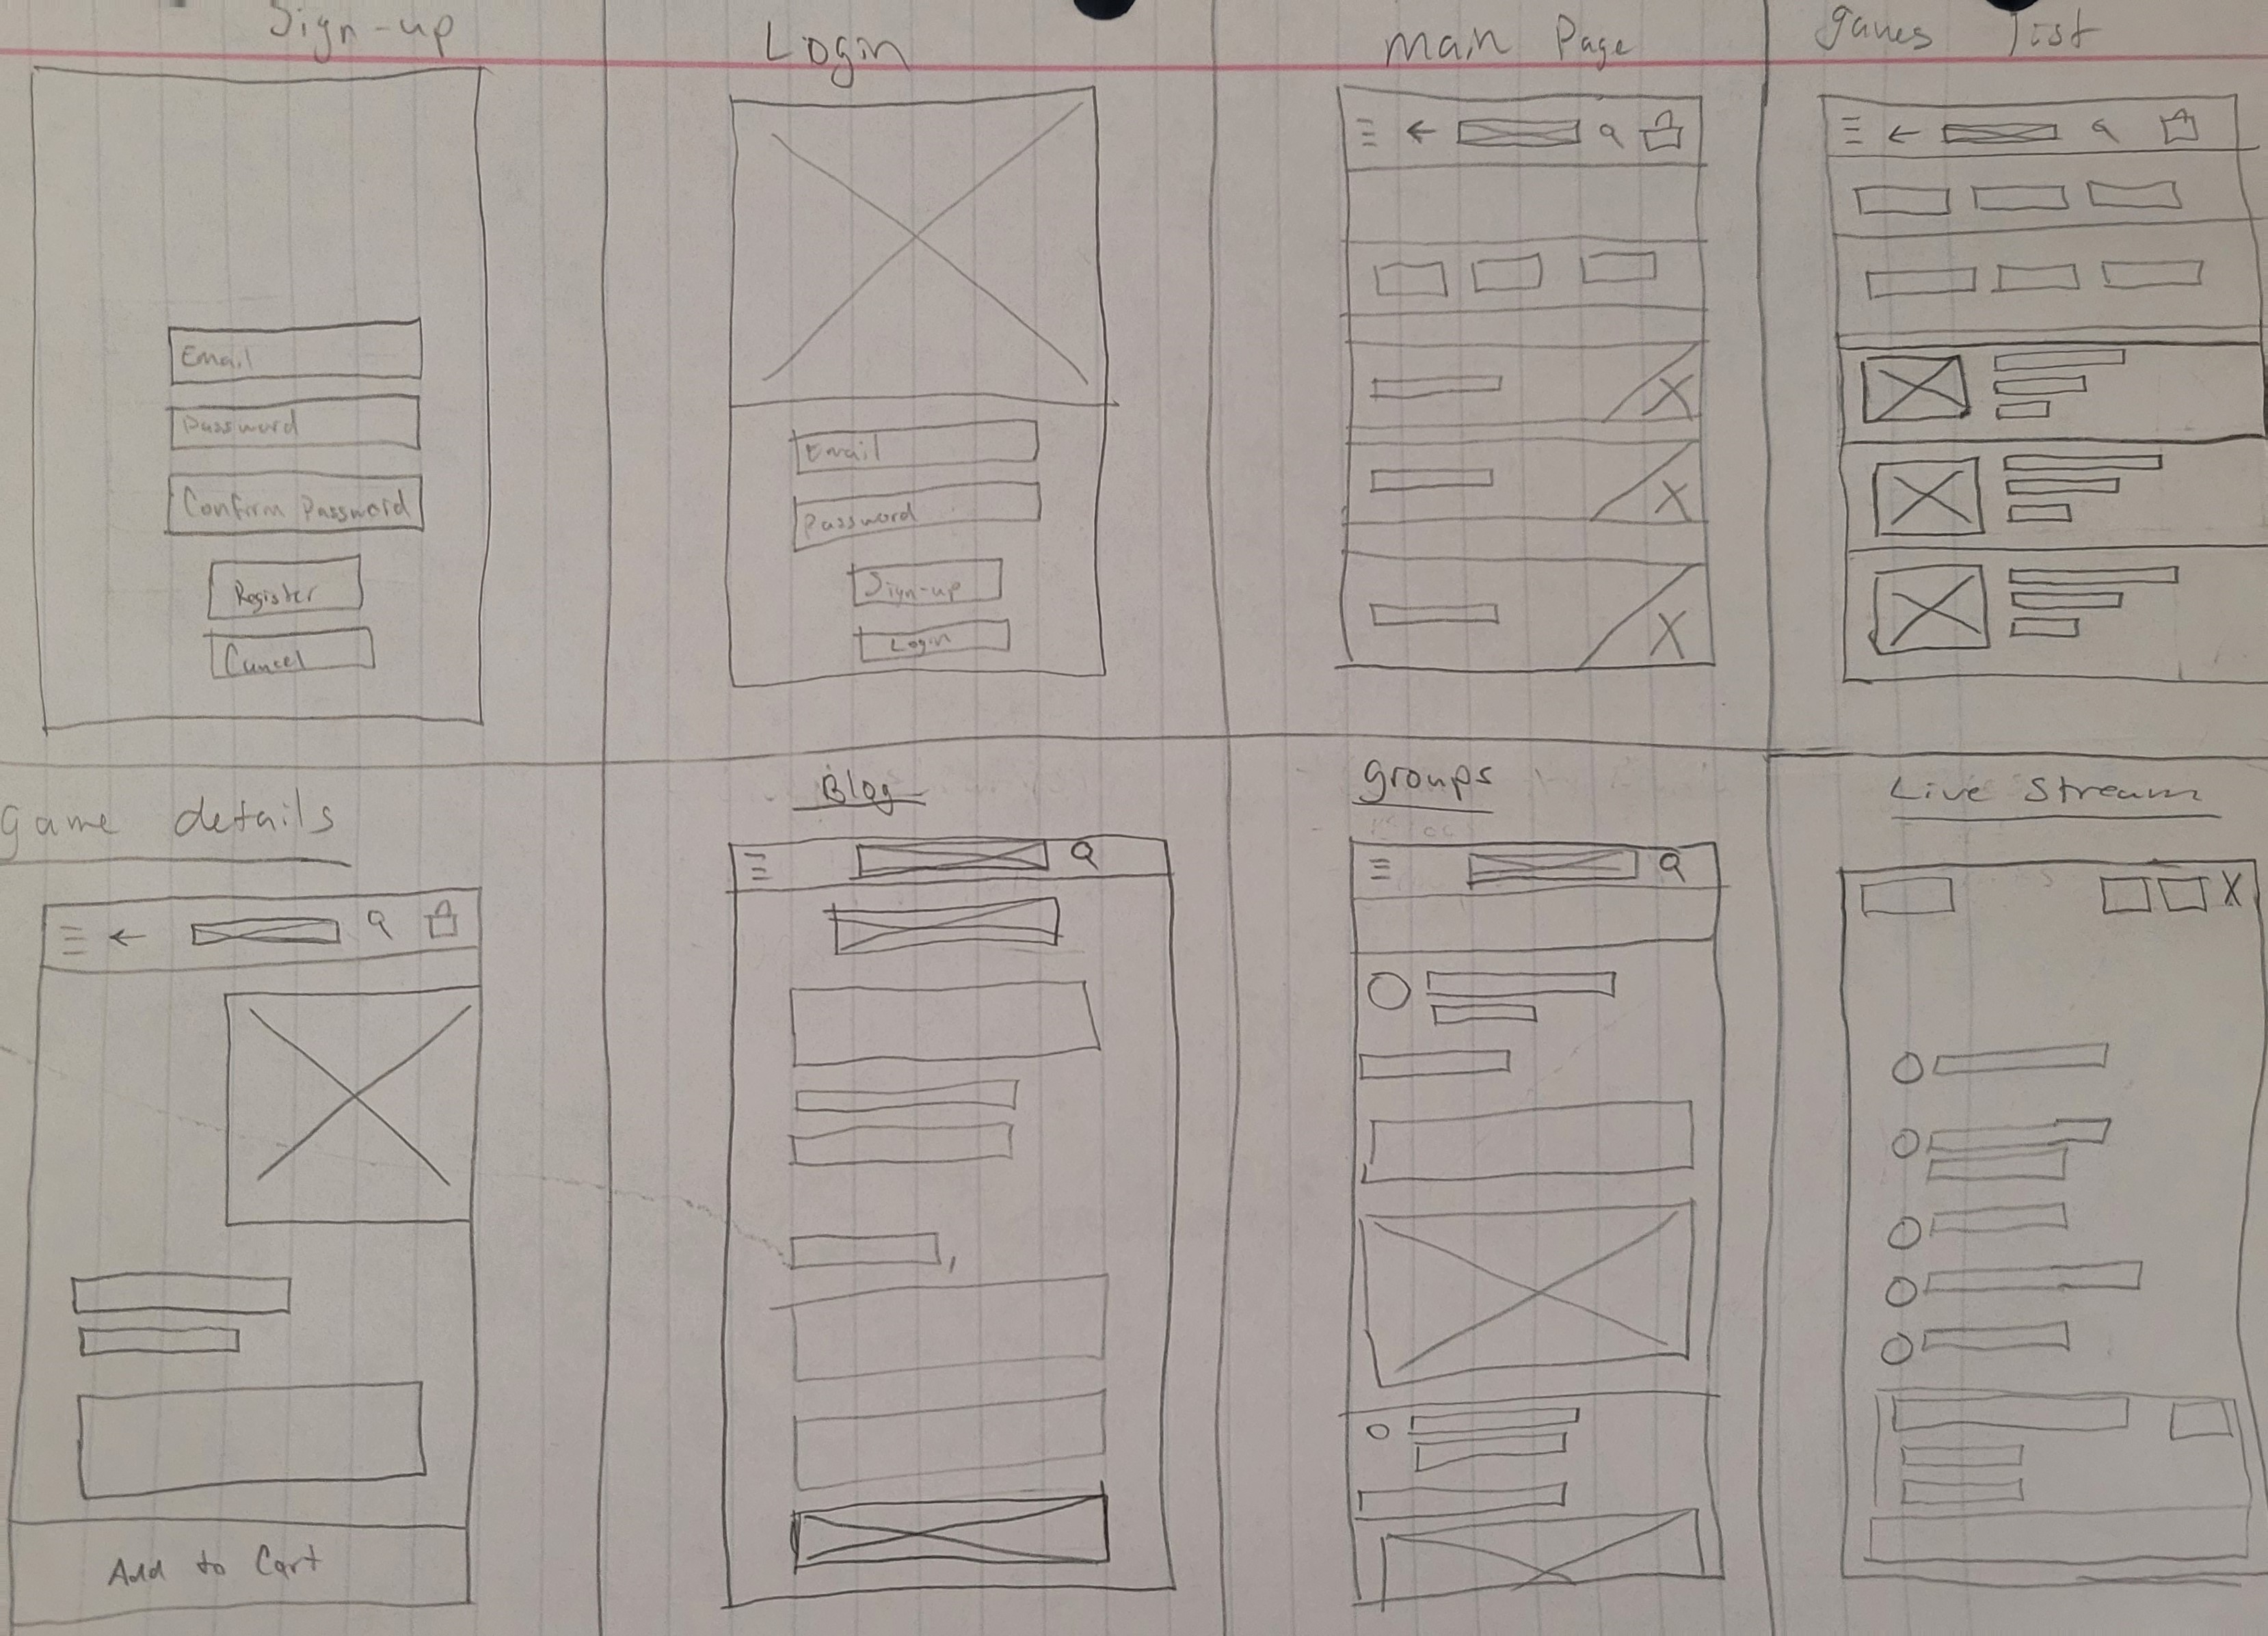 Sign-up
Email
Password
Confirm Password
Register
Cancel
Login
Email
Password
Sign-up
Login
main Page
games list
game details
Add to Cart
Blog
groups
Live Stream